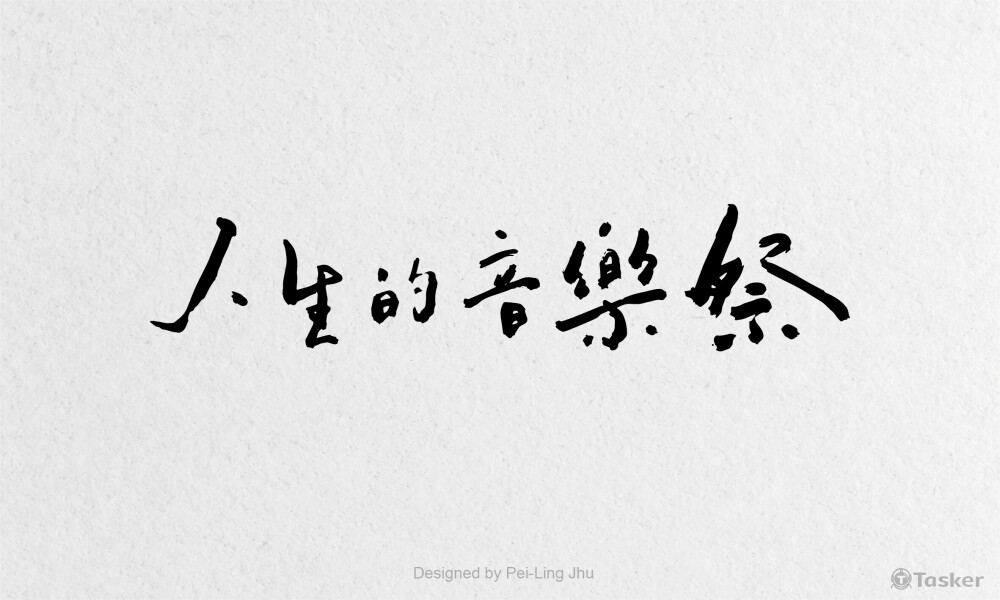 人生的音樂祭
Designed by Pei-Ling Jhu
Tasker